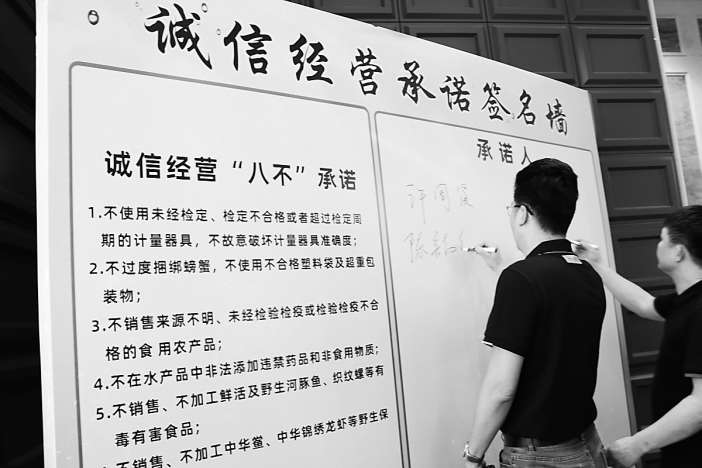 诚信经营承诺签名墙
诚信经营“八不”承诺
1.不使用未经检定、检定不合格或者超过检定周
期的计量器具，不故意破坏计量器具准确度；
2.不过度捆绑螃蟹，不使用不合格塑料袋及超重包
装物；
3.不销售来源不明、未经检验检疫或检验检疫不合
格的食 用农产品；
4.不在水产品中非法添加违禁药品和非食用物质；
5.不销售、不加工鲜活及野生河豚鱼、织纹螺等有
毒有害食品；
不销售、不加工中华鲎、中华锦绣龙虾等野生保
承诺人